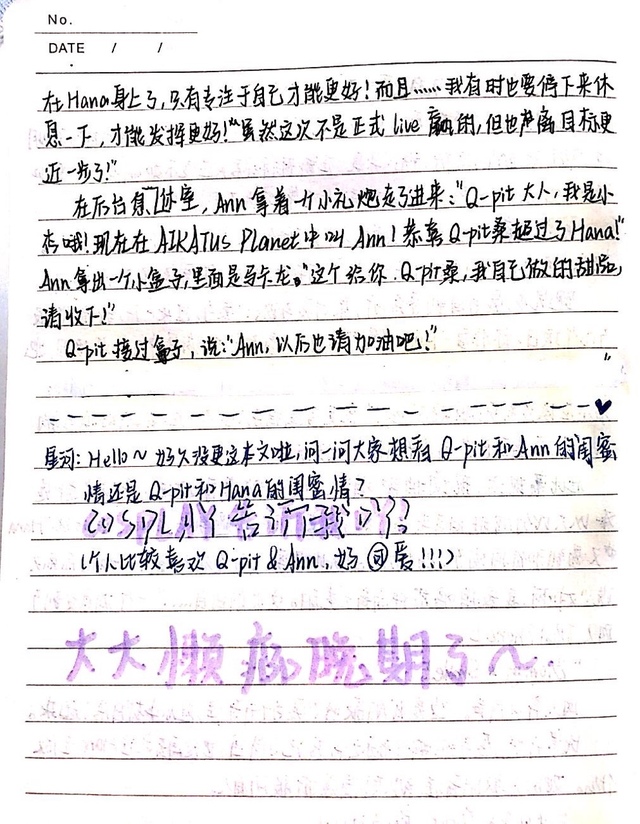 No.
DATE / /
在Hana身上了,只有专注于自己才能更好!而且……我有时也要停下来休
息一下,才能发挥更好!"虽然这次不是正式live赢的,但也离目标更
近一步了!"
在后台休息室,Ann拿着一个小礼炮走了进来:"Q-pit大人,我是小
杏哦!现在在AIKATUS Planet中叫Ann!恭喜Q-pit桑超过了Hana!"
Ann拿出一个小盒子,里面是马卡龙。"这个给你.Q-pit桑,我自己做的甜品,
请收下!"
Q-pit接过盒子,说:"Ann,以后也请加油吧!"
星河:Hello~好久没更这本文啦,问一问大家想看Q-pit和Ann的闺蜜
情还是Q-pit和Hana的闺蜜情?
COSPLAY告诉我吖?
(个人比较喜欢Q-pit&Ann,好可爱!!!)
大大懒癌晚期了~.